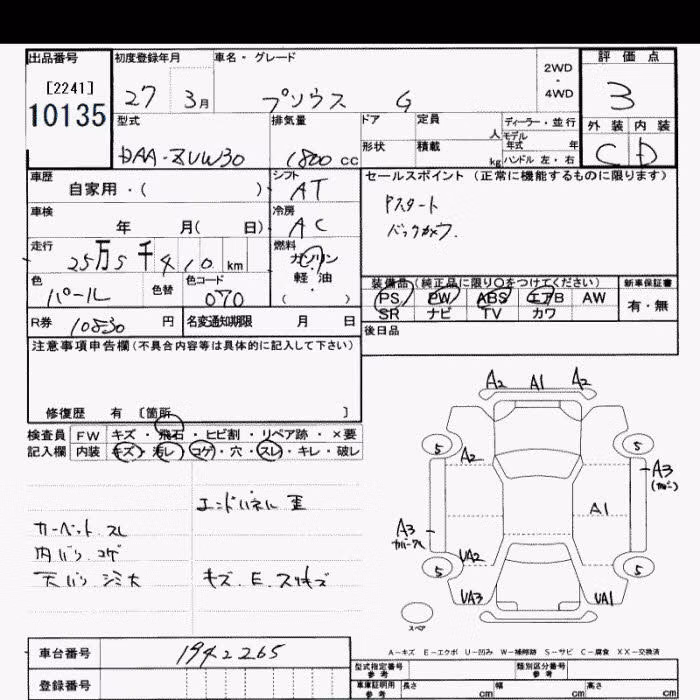 出品番号 初度登録年月 車名・グレード 2WD・4WD 評価点
[2241]
10135
27 3月 プリウス G 3
型式 排気量 ドア 定員 人 ディーラー・並行
モデル年式 年 外装 内装
形状 積載 kg ハンドル 左・右
DAA-ZVW30 1800 cc C D
車歴 シフト セールスポイント (正常に機能するものに限ります)
自家用・( ) AT
Pスタート
車検 冷房
年 月( 日) AC
バックカメラ.
走行 燃料
25万5千410km ガソリン・軽油
( )
色 色替 色コード
パール 070
装備品(純正品に限り〇をつけてください) 新車保証書
PS PW ABS エアB AW 有・無
SR ナビ TV カワ
R券 10830 円 名変通知期限 月 日
後日品
注意事項申告欄(不具合内容等は具体的に記入して下さい)
修復歴 有 〔箇所 〕
検査員 FW キズ・飛石・ヒビ割・リペア跡・×要
記入欄 内装 キズ・汚レ・コゲ・穴・スレ・キレ・破レ
エンドパネル 歪
カーペット スレ
内バリ コゲ
天バリ シミ大
キズ.E.スリキズ
A2 A1 A2
5 5
A2 A3
A3 A1
5 UA2 5
UA3 UA1
スペア
A−キズ E−エクボ U−凹み W−補修跡 S−サビ C−腐食 XX−交換済
車台番号 1942265
登録番号
型式指定番号 参考 類別区分番号 参考
車庫証明用 参考 長さ cm 幅 cm 高さ cm